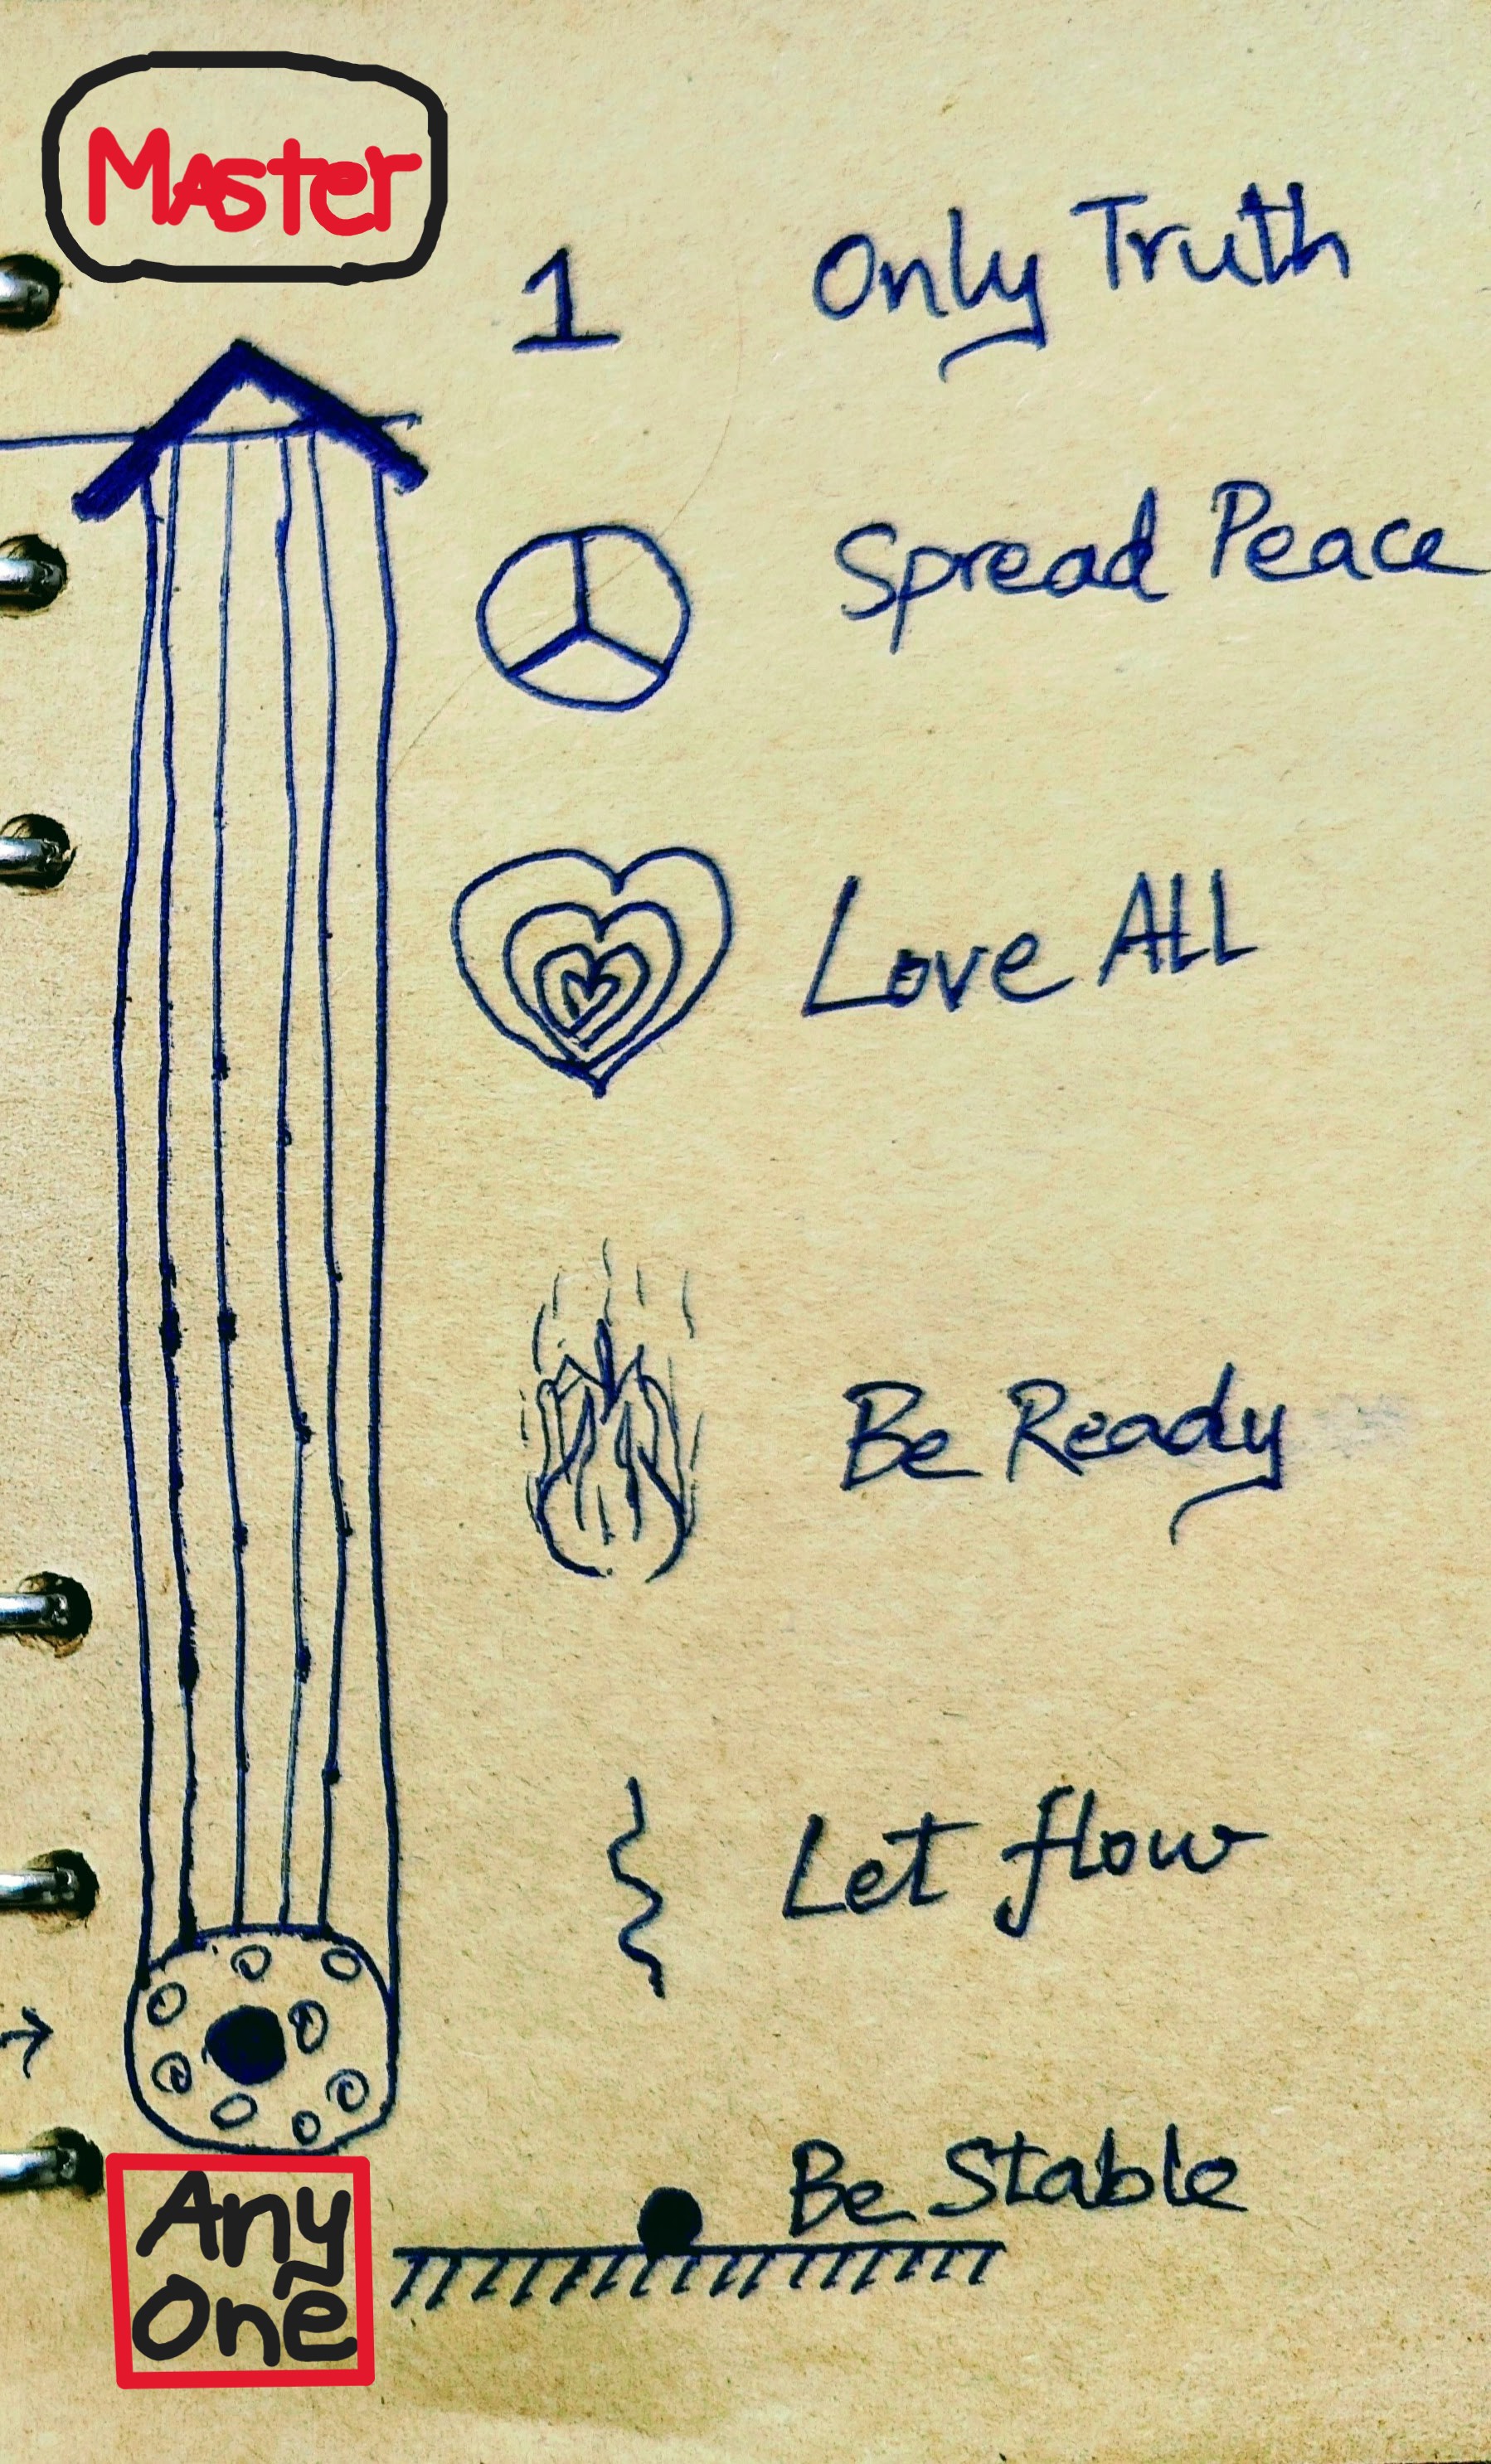 Master
1 Only Truth
Spread Peace
Love All
Be Ready
Let flow
Be Stable
Any
One